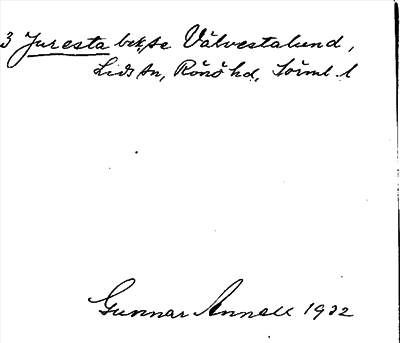 3 Juresta bek, se Välvestalund,
Lids sn, Rönö hd, Sörml. l
Gunnar Annell 1932